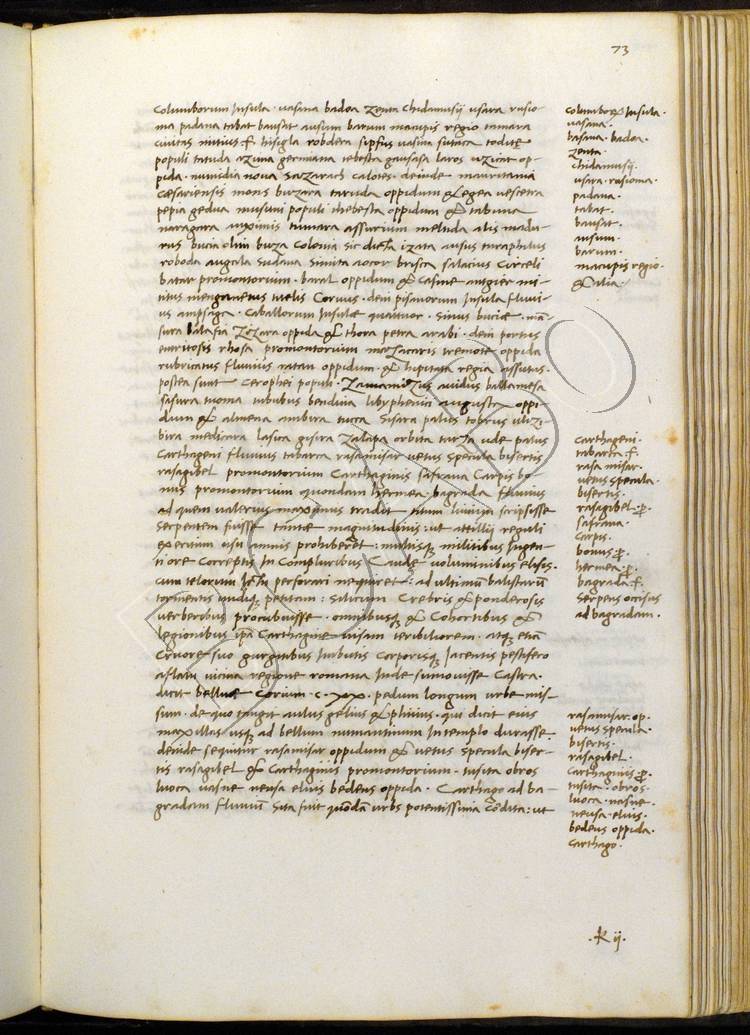 73
Columborum Insula · vasana badoa Zenta Chidamusij usara rusio-
ma padana tabat bausat ausum barum macupis regio tamara
civitas mutius .f. hisigla robdera sipfus vasina sutaca todite
populi tatuda azuna germana tebesta gausasa laros uzicat op-
pida · numidia nova Sarzarach calotes · deinde · mauritania
Cæsariensis mons buzara taruda oppidum & egea vescetra
pepia gedua musuni populi thebesta oppidum & tabuna
naragara tumara assurium melida alis madu-
rus bucia olim buza Colonia sic dicta izata ausus turaphilus
roboda augula sudava simita aocor brisca salacius Circeli
batar promontorium · barat oppidum & Casme
titus menganeus Corvus · dein pisanorum Insula fluvi-
us ampsaga · Caballorum Insulæ quatuor · sinus buciæ · ma-
sura balasia Zozara oppida & thora petra arabi · dein portus
euritosis rhosa promontorium mazacaris tremote oppida
rubricatus fluvius natan oppidum · & hipitata regia assutus ·
postea sunt Cerophei populi · Zamamizus avidus ballamesa
sasura tucma tububus bendina libyphenici augusta oppi-
dum & almena ambira tucca sisara palus tobrus ulizi-
bira medicara lasica gisira Zalapa orbita tarza ude palus
Carthageni fluvius tabarca rasamisar vetus specula bisertis
rasagibel promontorium Carthaginis safrana Carpis bo-
nus promontorium quondam hermea · bagrada fluvius
ad quem valerius maximus tradit titum livium scripsisse
serpentem fuisse tantæ magnitudinis: ut attilij reguli
exercitum usu amnis prohiberet: multisq; militibus Ingen-
ti ore Correptis In Compluribus Caudæ voluminibus elisis ·
cum telorum Ictu perforari nequiret: ad ultimum balistarum
tormentis undiq; petitam: silicum Crebris & ponderosis
verberibus procubuisse · omnibusq; & Cohortibus &
legionibus ipa Carthagine visam teribiliorem · atq; etia
Cruore suo gurgitibus Imbutis Corporisq; Iacentis pestifero
aflatu vicina regione romana Inde sumovisse Castra ·
dicit belluæ Corium · c · xx · pedum longum urbe mis-
sum · de quo tangit aulus gelius & plinius · qui dicit eius
maxillas usq; ad bellum numantinum In templo durasse
deinde sequitur rasamisar oppidum & vetus specula biser-
tis rasagibel & Carthaginis promontorium · tusita obros
luoca vasne neusa eluis bedens oppida · Carthago ad ba-
gradam fluvium sita fuit quondam urbs potentissima Condita: ut
Columborum Insula ·
vasana ·
basana · badoa ·
Zenta ·
Chidamusij ·
usara · rusioma ·
padana ·
tabat ·
bausat ·
ausum ·
barum ·
macupis regio ·
& alia ·
Carthageni ·
tabarca .f.
rasa misar ·
vetus specula ·
bisertis ·
rasagibel · p.
safrana ·
Carpis ·
bonus p.
hermea · p.
bagrada .f.
Serpens occisus
ad bagradam ·
rasamisar · op ·
vetus specula ·
bisertis ·
rasagibel ·
Carthaginis p.
tusita · obros
luoca · vasne ·
neusa · eluis ·
bedens oppida ·
Carthago ·
· k ij ·